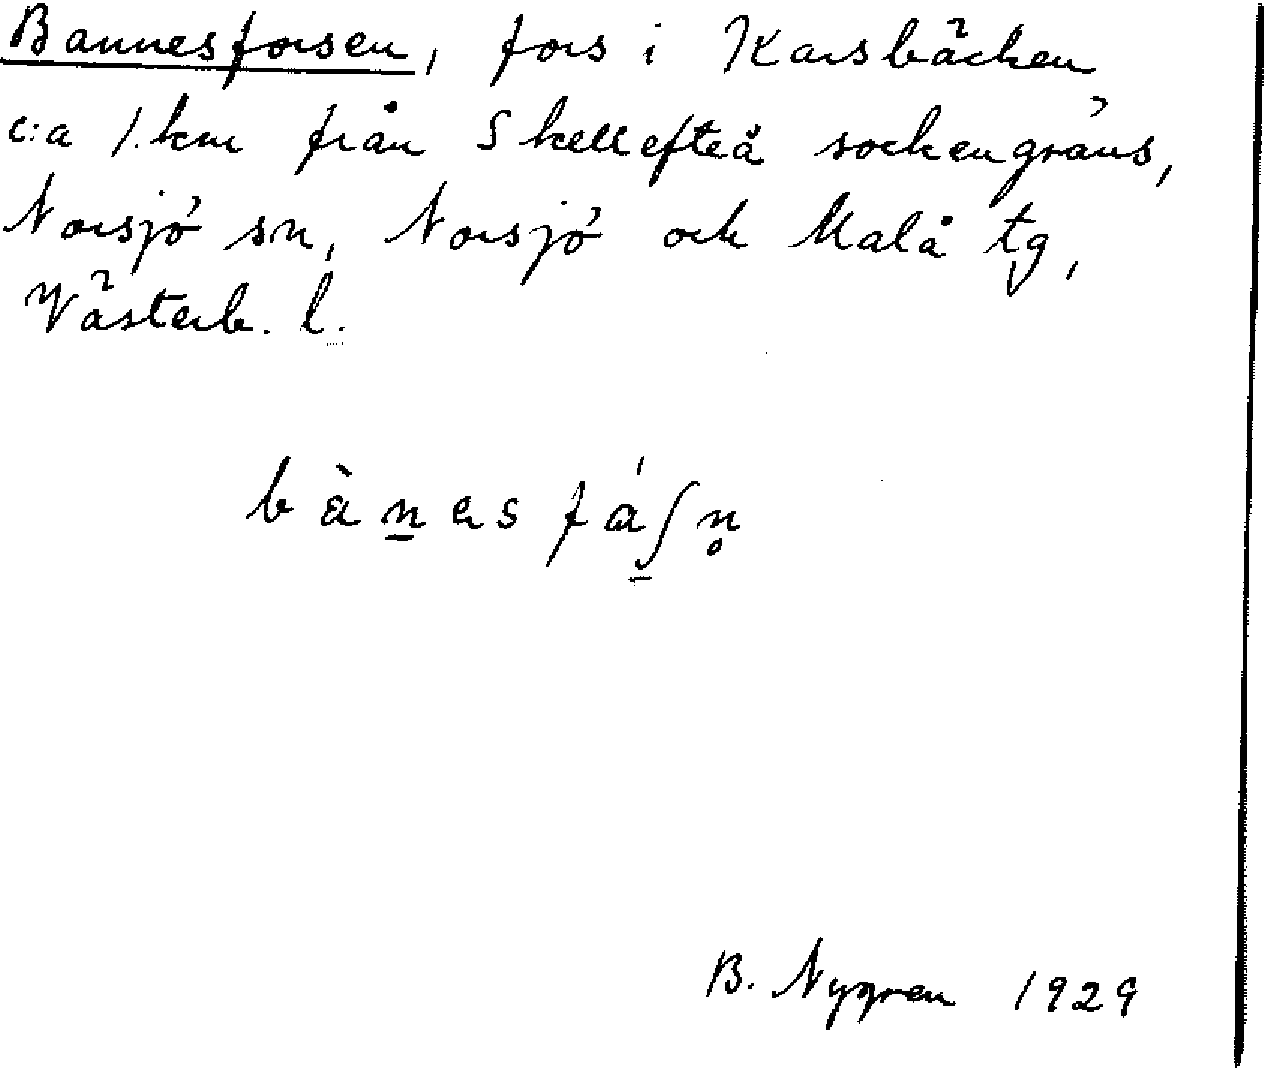 Bannesforsen, fors i Karsbäcken
c:a 1 km från Skellefteå sockengräns,
Norsjö sn, Norsjö och Malå tg,
Västerb. l.
bànesfáʃn̥
B. Nygren 1929